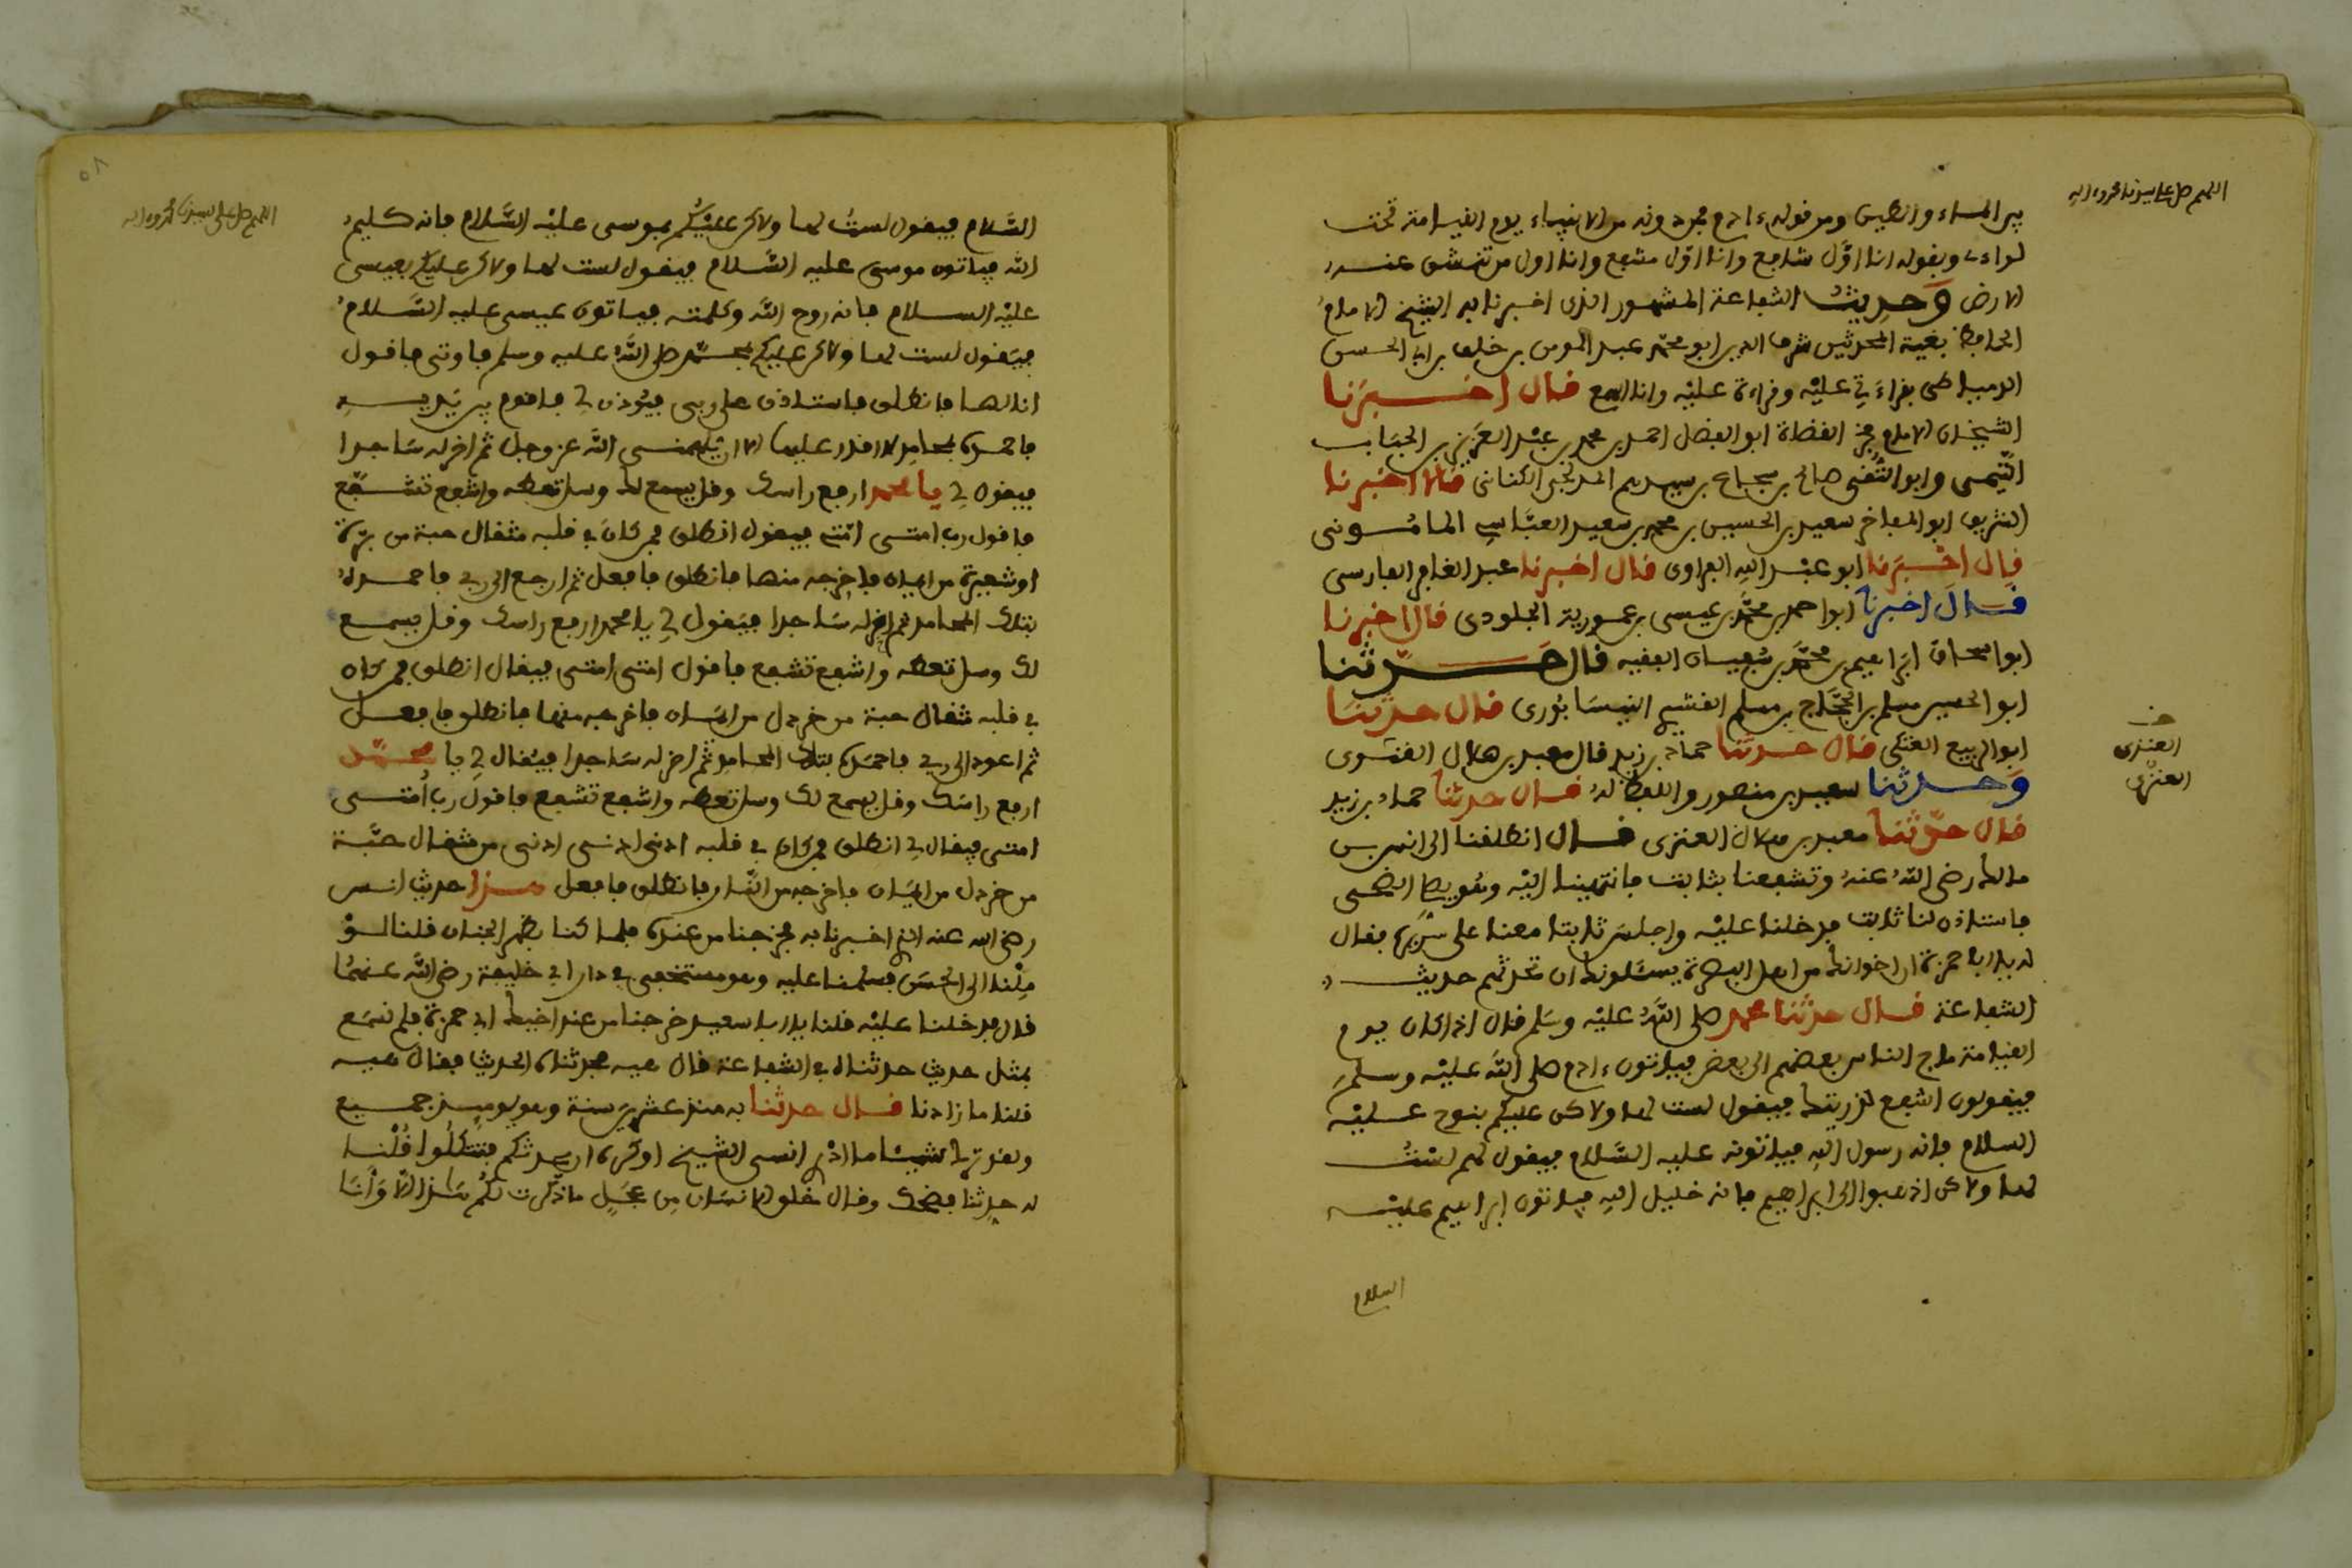 اللهم صل على سيدنا محمد وءاله
بين الماء والطين ومن قوله ءادم فمن دونه من الانبياء يوم القيامة تحت
لواءى وبقوله انا اول شافع وانا اول مشفع وانا اول من تنشق عنه
الارض وحديث الشفاعة المشهور الذى اخبرنا به الشيخ الامام
الحافظ بغية المحدثين شرف الدين ابو محمد عبد المومن بن خلف بن ابى الحسن
الدمياطى بقراءتى عليه وقراءة عليه وانا اسمع قال اخبرنا
الشيخان الامام فخر القضاة ابو الفضل احمد بن محمد بن عبد العزيز بن الحباب
التميمى وابو التقى صالح بن شجاع بن سيدهم المدلجى الكنانى قالا اخبرنا
الشريف ابو المفاخر سعيد بن الحسين بن محمد بن سعيد العباسى المامونى
قال اخبرنا ابو عبد الله الفراوى قال اخبرنا عبد الغافر الفارسى
قال اخبرنا ابو احمد بن محمد بن عيسى بن عمورية الجلودى قال اخبرنا
ابو اسحاق ابراهيم بن محمد بن سفيان الفقيه قال حدثنا
ابو الحسين مسلم بن الحجاج بن مسلم القشيرى النيسابورى قال حدثنا
ابو الربيع العتكى قال حدثنا حماد بن زيد قال معبد بن هلال العنزى
وحدثنا سعيد بن منصور واللفظ له قال حدثنا حماد بن زيد
قال حدثنا معبد بن هلال العنزى قال انطلقنا الى انس بن
مالك رضى الله عنه وتشفعنا بثابت فانتهينا اليه وهو يصلى الضحى
فاستاذن لنا ثابت فدخلنا عليه واجلس ثابتا معنا على سريره فقال
له يا ابا حمزة ان اخوانك من اهل البصرة يسئلونك ان تحدثهم حديث
الشفاعة قال حدثنا محمد صلى الله عليه وسلم قال اذا كان يوم
القيامة ماج الناس بعضهم الى بعض فياتون ءادم صلى الله عليه وسلم
فيقولون اشفع لذريتك فيقول لست لها ولاكن عليكم بنوح عليه
السلام فانه رسول الله فياتونه عليه السلام فيقول لهم لست
لها ولاكن اذهبوا الى ابراهيم فانه خليل الله فياتون ابراهيم عليه
السلام
العنزى
العنزى
٥٨
اللهم صل على سيدنا محمد وءاله
السلام فيقول لست لها ولاكن عليكم بموسى عليه السلام فانه كليم
الله فياتون موسى عليه السلام فيقول لست لها ولاكن عليكم بعيسى
عليه السلام فانه روح الله وكلمته فياتون عيسى عليه السلام
فيقول لست لها ولاكن عليكم بمحمد صلى الله عليه وسلم فاوتى فاقول
انا لها فانطلق فاستاذن على ربى فيؤذن لى فاقوم بين يديه
فاحمده بمحامد لا اقدر عليها الا ان يلهمنى الله عز وجل ثم اخر له ساجدا
فيقول لى يا محمد ارفع راسك وقل يسمع لك وسل تعطه واشفع تشفع
فاقول رب امتى امتى فيقول انطلق فمن كان فى قلبه مثقال حبة من برة
او شعيرة من ايمان فاخرجه منها فانطلق فافعل ثم ارجع الى ربى فاحمده
بتلك المحامد ثم اخر له ساجدا فيقول لى يا محمد ارفع راسك وقل يسمع
لك وسل تعطه واشفع تشفع فاقول امتى امتى فيقال انطلق فمن كان
فى قلبه مثقال حبة من خردل من ايمان فاخرجه منها فانطلق فافعل
ثم اعود الى ربى فاحمده بتلك المحامد ثم اخر له ساجدا فيقال لى يا محمد
ارفع راسك وقل يسمع لك وسل تعطه واشفع تشفع فاقول رب امتى
امتى فيقال لى انطلق فمن كان فى قلبه ادنى ادنى ادنى من مثقال حبة
من خردل من ايمان فاخرجه من النار فانطلق فافعل هذا حديث انس
رضى الله عنه الذى اخبرنا به فخرجنا من عنده فلما كنا بظهر الجبان قلنا لو
ملنا الى الحسن فسلمنا عليه وهو مستخفى فى دار ابى خليفة رضى الله عنهما
قال فدخلنا عليه قلنا يا ابا سعيد خرجنا من عند اخيك ابى حمزة فلم نسمع
بمثل حديث حدثناه فى الشفاعة قال هيه فحدثناه الحديث فقال هيه
قلنا ما زادنا قال حدثنا به منذ عشرين سنة وهو يوميذ جميع
ولقد ترك شيئا ما ادرى انسى الشيخ او كره ان يحدثكم فتتكلوا قلنا
له حدثنا فضحك وقال خلق الانسان من عجل ما ذكرت لكم هذا الا وانا